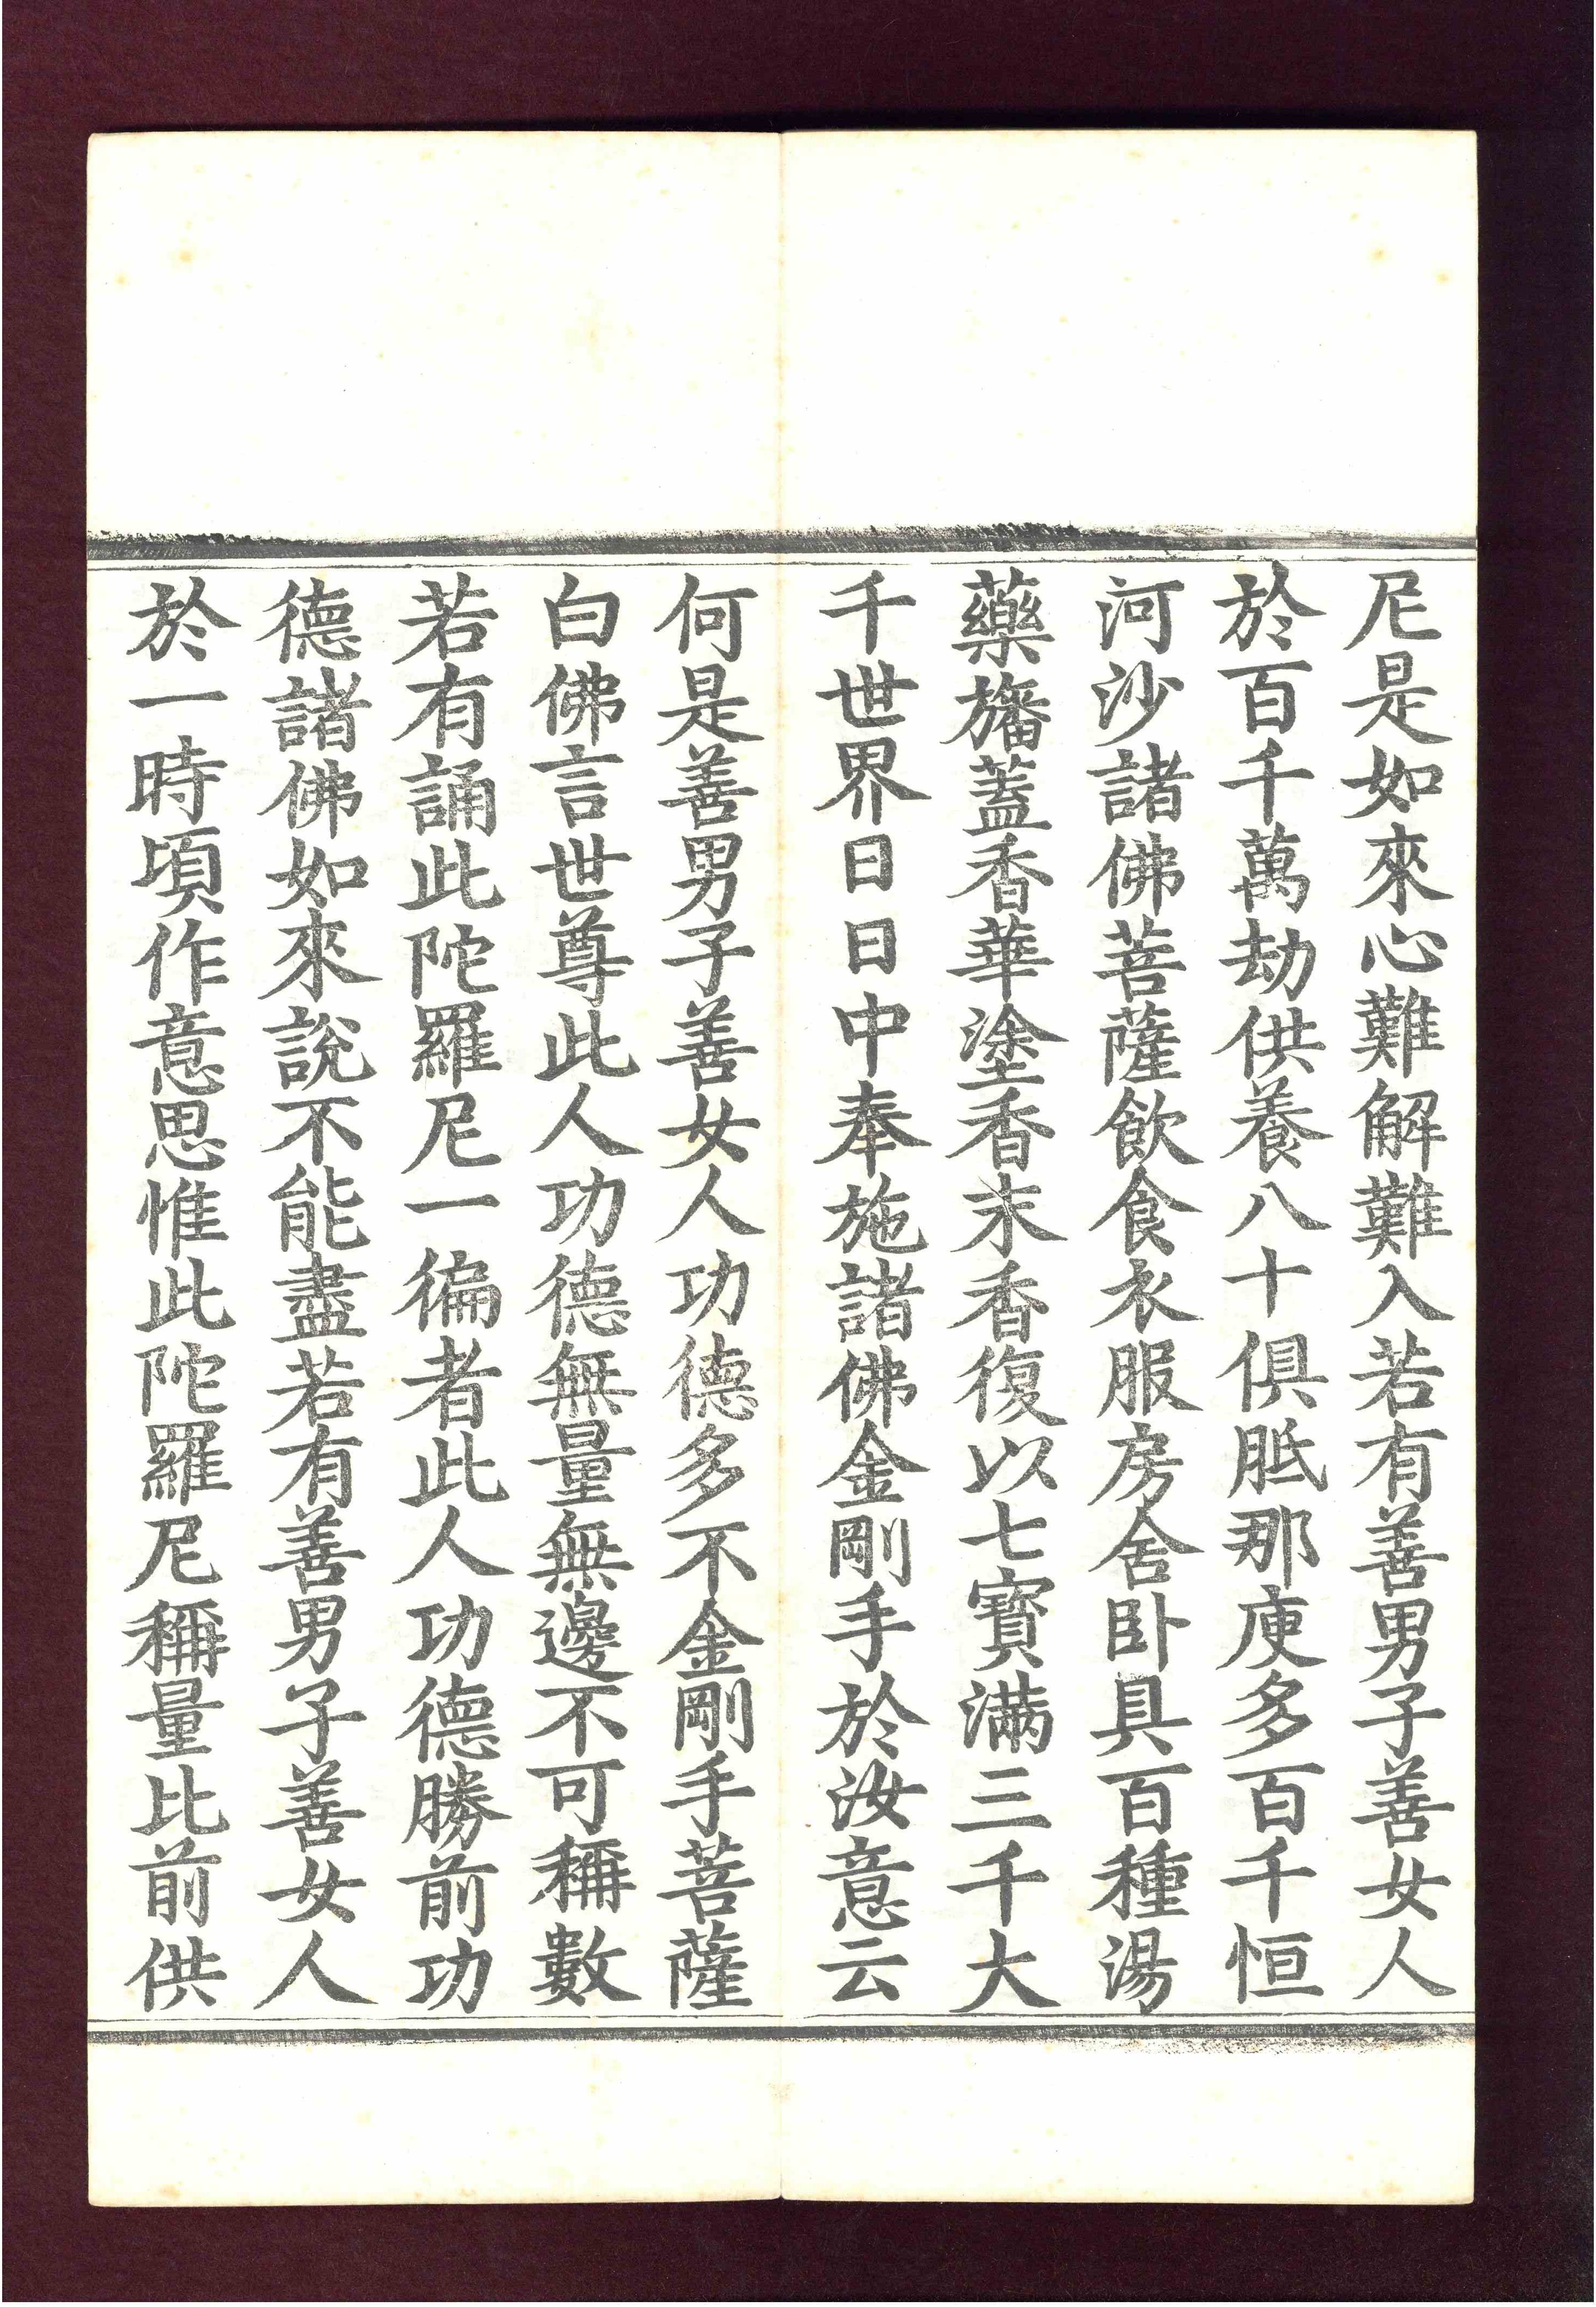 尼是如來心難解難入若有善男子善女人
於百千萬劫供養八十俱胝那庾多百千恒
河沙諸佛菩薩飲食衣服房舍卧具百種湯
藥旛蓋香華塗香末香復以七寶滿三千大
千世界日日中奉施諸佛金剛手於汝意云
何是善男子善女人功德多不金剛手菩薩
白佛言世尊此人功德無量無邊不可稱數
若有誦此陀羅尼一徧者此人功德勝前功
德諸佛如來說不能盡若有善男子善女人
於一時頃作意思惟此陀羅尼稱量比前供